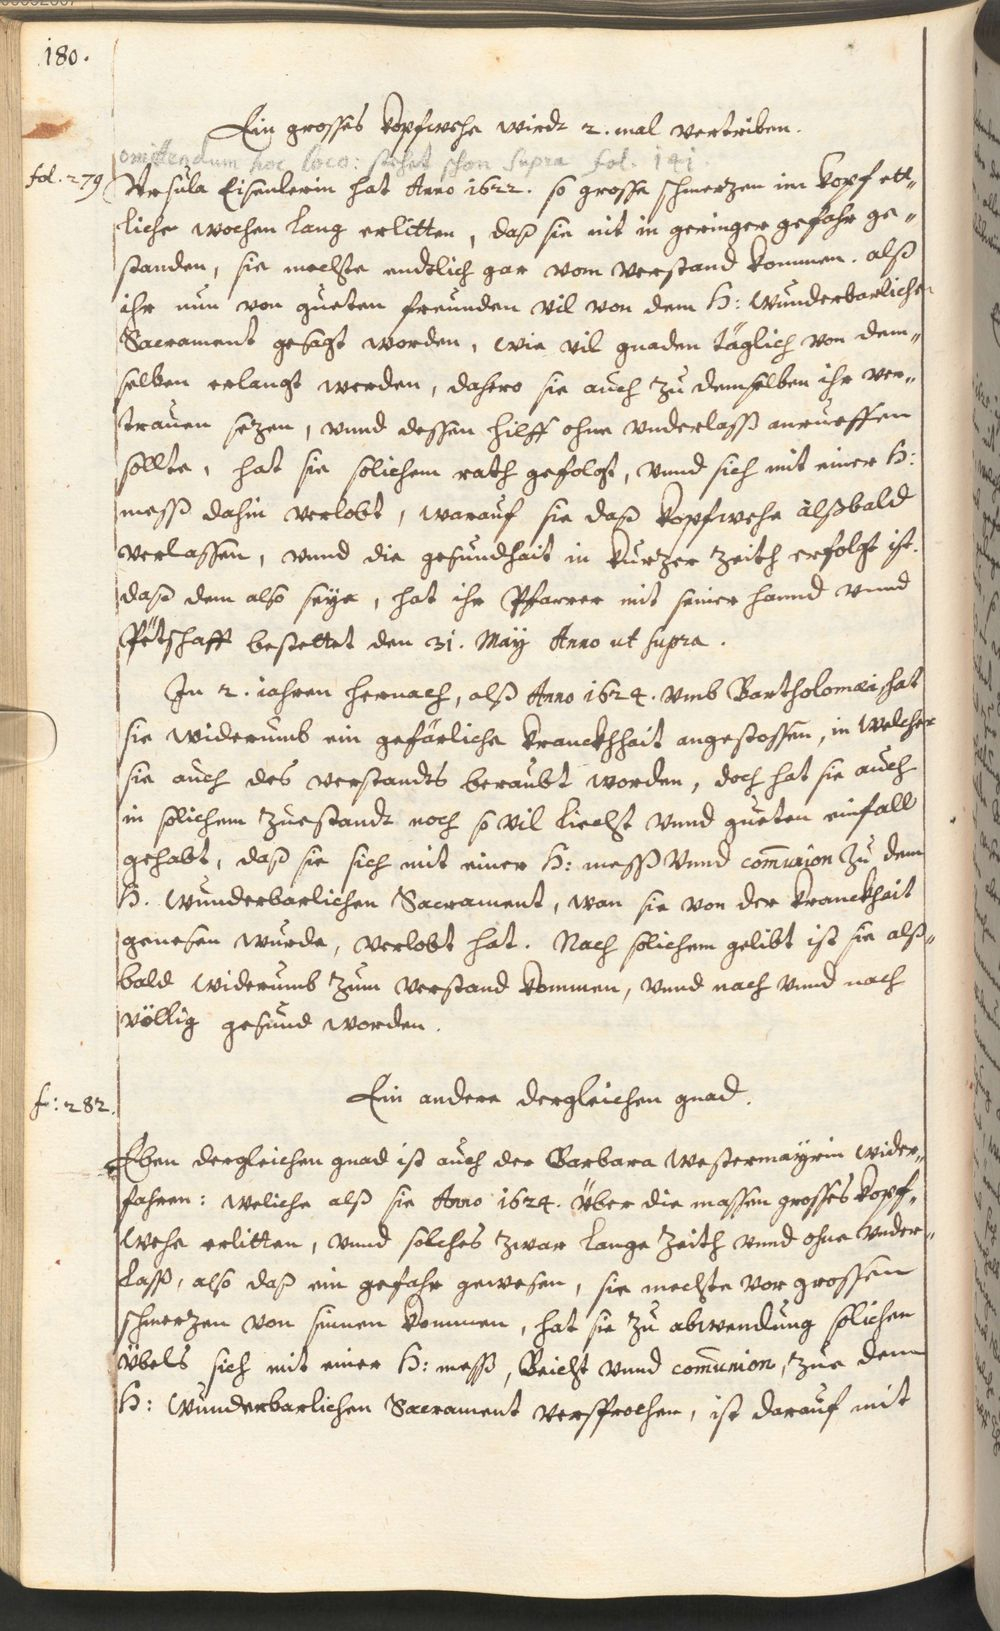 180.
Ein grosses kopfwehe wirdt 2. mal vertriben.
omittendum hoc loco: stehet schon supra fol. 141.
fol. 279
Ursula Eisenlerin hat Anno 1622. so grosse schmerzen im kopf ett„
liche wochen lang erlitten, daß sie nit in geringer gefahr ge„
standen, sie mechste endtlich gar vom verstand kommen. alß
ihr nun von gueten freunden vil von dem H: Wunderbarlichen
Sacrament gesagt worden, wie vil gnaden täglich von dem„
selben erlangt werden, dahero sie auch zu demselben ihr ver„
trauen sezen, vnnd dessen hilff ohne vnderlaß anrueffen
sollte, hat sie solichem rath gefolgt, vnnd sich mit einer H:
meß dahin verlobt, warauf sie daß kopfwehe alßbald
verlassen, vnnd die gesundhait in kurzer zeith erfolgt ist.
daß dem also seye, hat ihr Pfarrer mit seiner hannd vnnd
Petschafft bestettet den 31. Maÿ Anno ut supra.
In 2. iahren hernach, alß Anno 1624. vmb Bartholomæi, hat
sie widerumb ein gefärliche kranckhhait angestossen, in welcher
sie auch des verstandts beraubt worden, doch hat sie auch
in solichem zuestandt noch so vil liecht vnnd gueten einfall
gehabt, daß sie sich mit einer H: meß vnnd com̄union zu dem
H. Wunderbarlichen Sacrament, wan sie von der kranckhait
genesen wurde, verlobt hat. Nach solichem gelibt ist sie alß„
bald widerumb zum verstand kommen, vnnd nach vnnd nach
völlig gesund worden.
f: 282.
Ein andere dergleichen gnad.
Eben dergleichen gnad ist auch der Barbara Westermayrin wider„
fahren: weliche alß sie Anno 1624. über die massen grosses kopf„
wehe erlitten, vnnd solches zwar lange zeith vnnd ohne vnder„
laß, also daß ein gefahr gewesen, sie mechste vor grossen
schmerzen von sinnen kommen, hat sie zu abwendung solichen
übels sich mit einer H: meß, Beicht vnnd com̄union, zue dem
H: Wunderbarlichen Sacrament versprochen, ist darauf mit